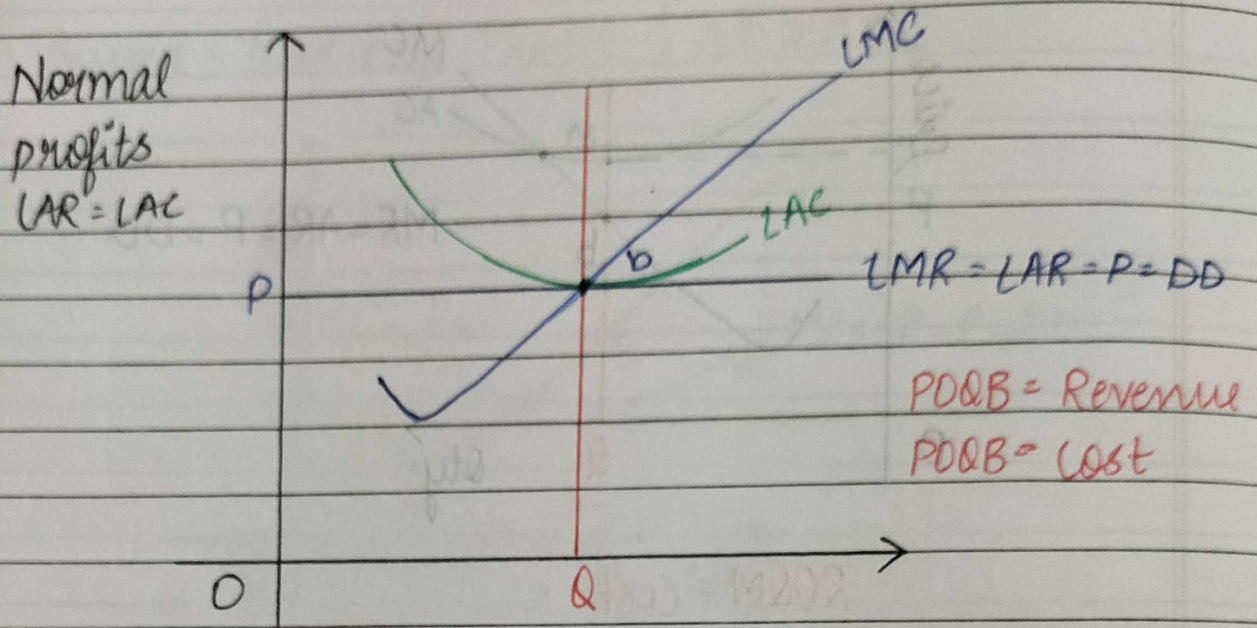 Normal
profits
LAR = LAC
LMC
LAC
b
P
LMR = LAR = P = DD
POQB = Revenue
POQB = Cost
O
Q